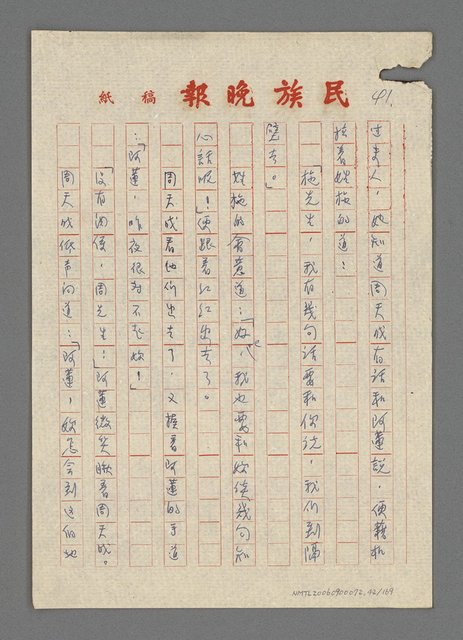 41.
民族晚報 稿紙
人，她知道周天成有話和阿蓮說，便藉機
拉着姓施的道：
「施先生，我有幾句話要和你說，我們到隔
壁去。」
姓施的會意道：「好吧，我也要和妳談幾句知
心話呢！」便跟着紅紅出去了。
周天成看他們出去了，又摸着阿蓮的手道
：「阿蓮，昨夜很對不起妳！」
「沒有關係，周先生！」阿蓮微笑瞅着周天成。
周天成低声问道：「阿蓮，妳怎会到這個地
NMTL20060900072_42/169